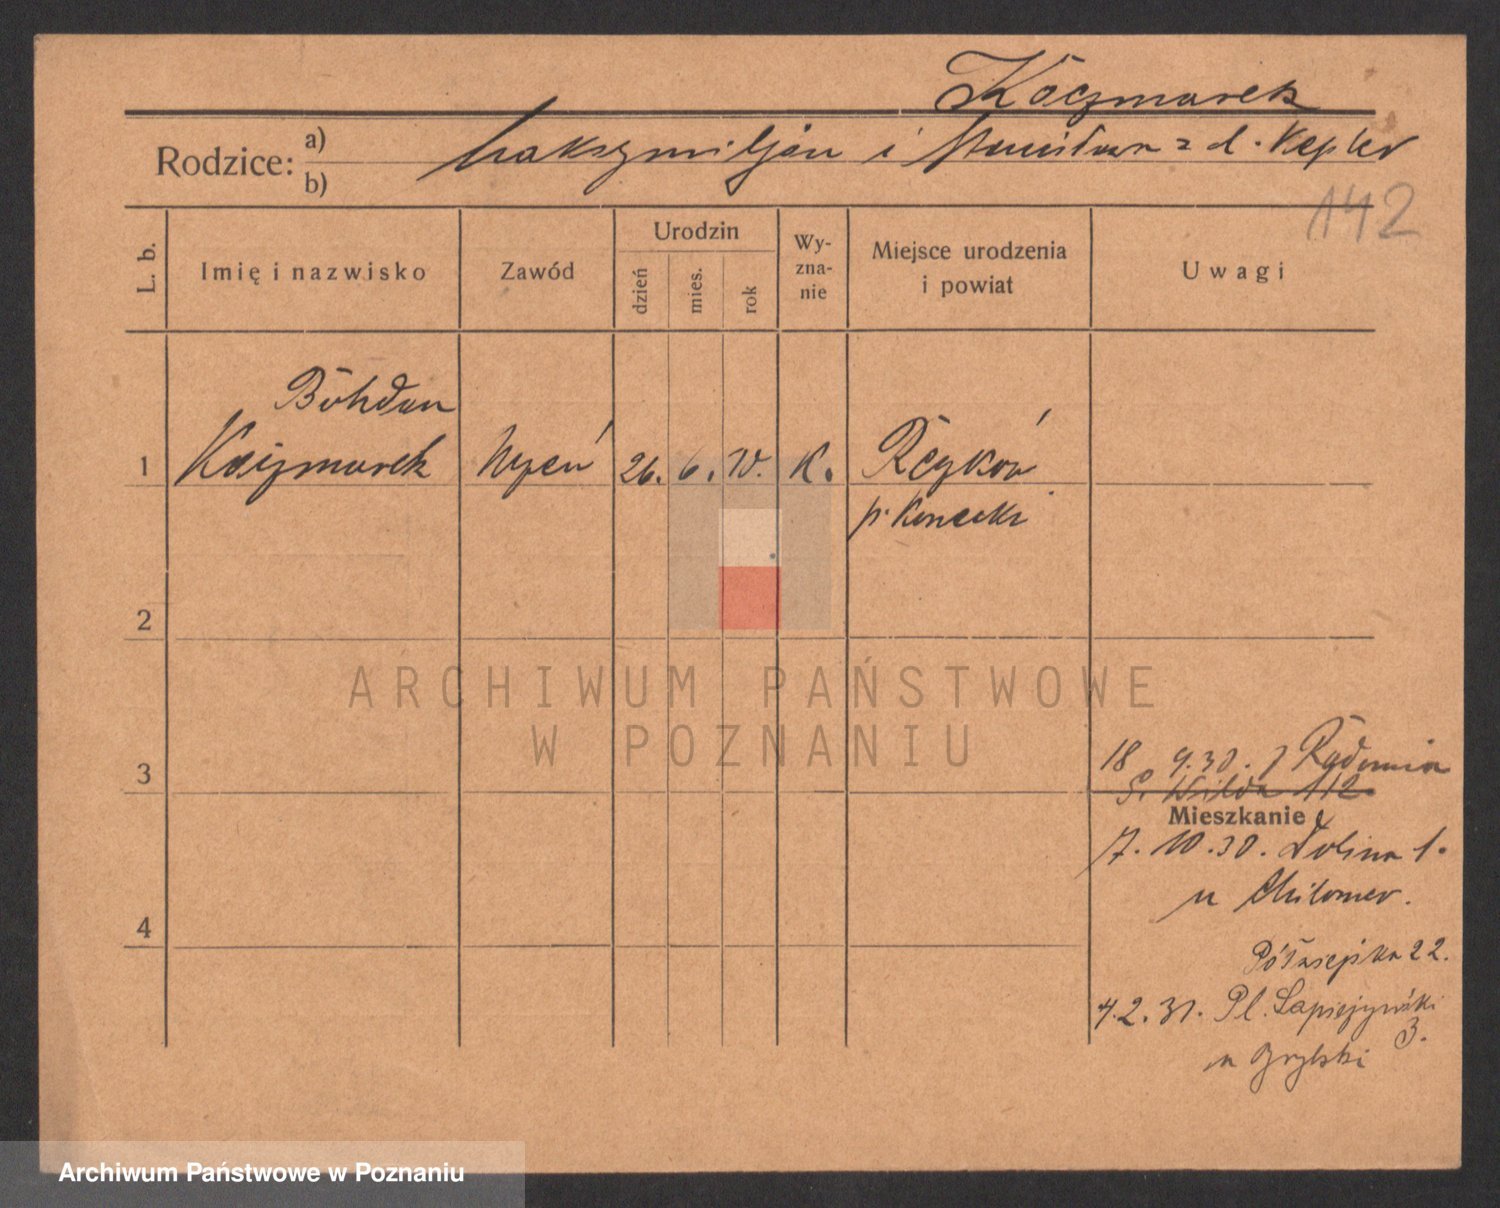 Kaczmarek
Rodzice: a) b) Maksymiljan i Stanisława z d. Kepler
142
L. b.
Imię i nazwisko
Zawód
Urodzin
dzień
mies.
rok
Wy-
zna-
nie
Miejsce urodzenia
i powiat
Uwagi
Bohdan
1 Kaczmarek uczeń 26. 6. K.
p. Konecki
2
ARCHIWUM PAŃSTWOWE
W POZNANIU
3
18 9.30. z Radomia
G. Wilda 112.
Mieszkanie
7. 10.30. Dolina 1.
u
4
Półwiejska 22.
4.2.31. Pl. Sapieżyński
3.
u Grylski
Archiwum Państwowe w Poznaniu